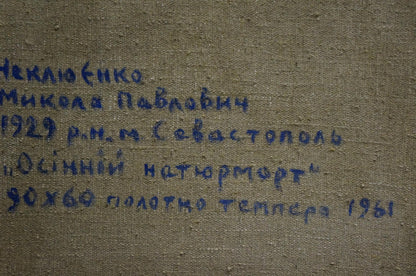 Наклюєнко
Микола Павлович
1929 р.н.м Севастополь
„Осінній натюрморт"
90х60 полотно темпера 1961